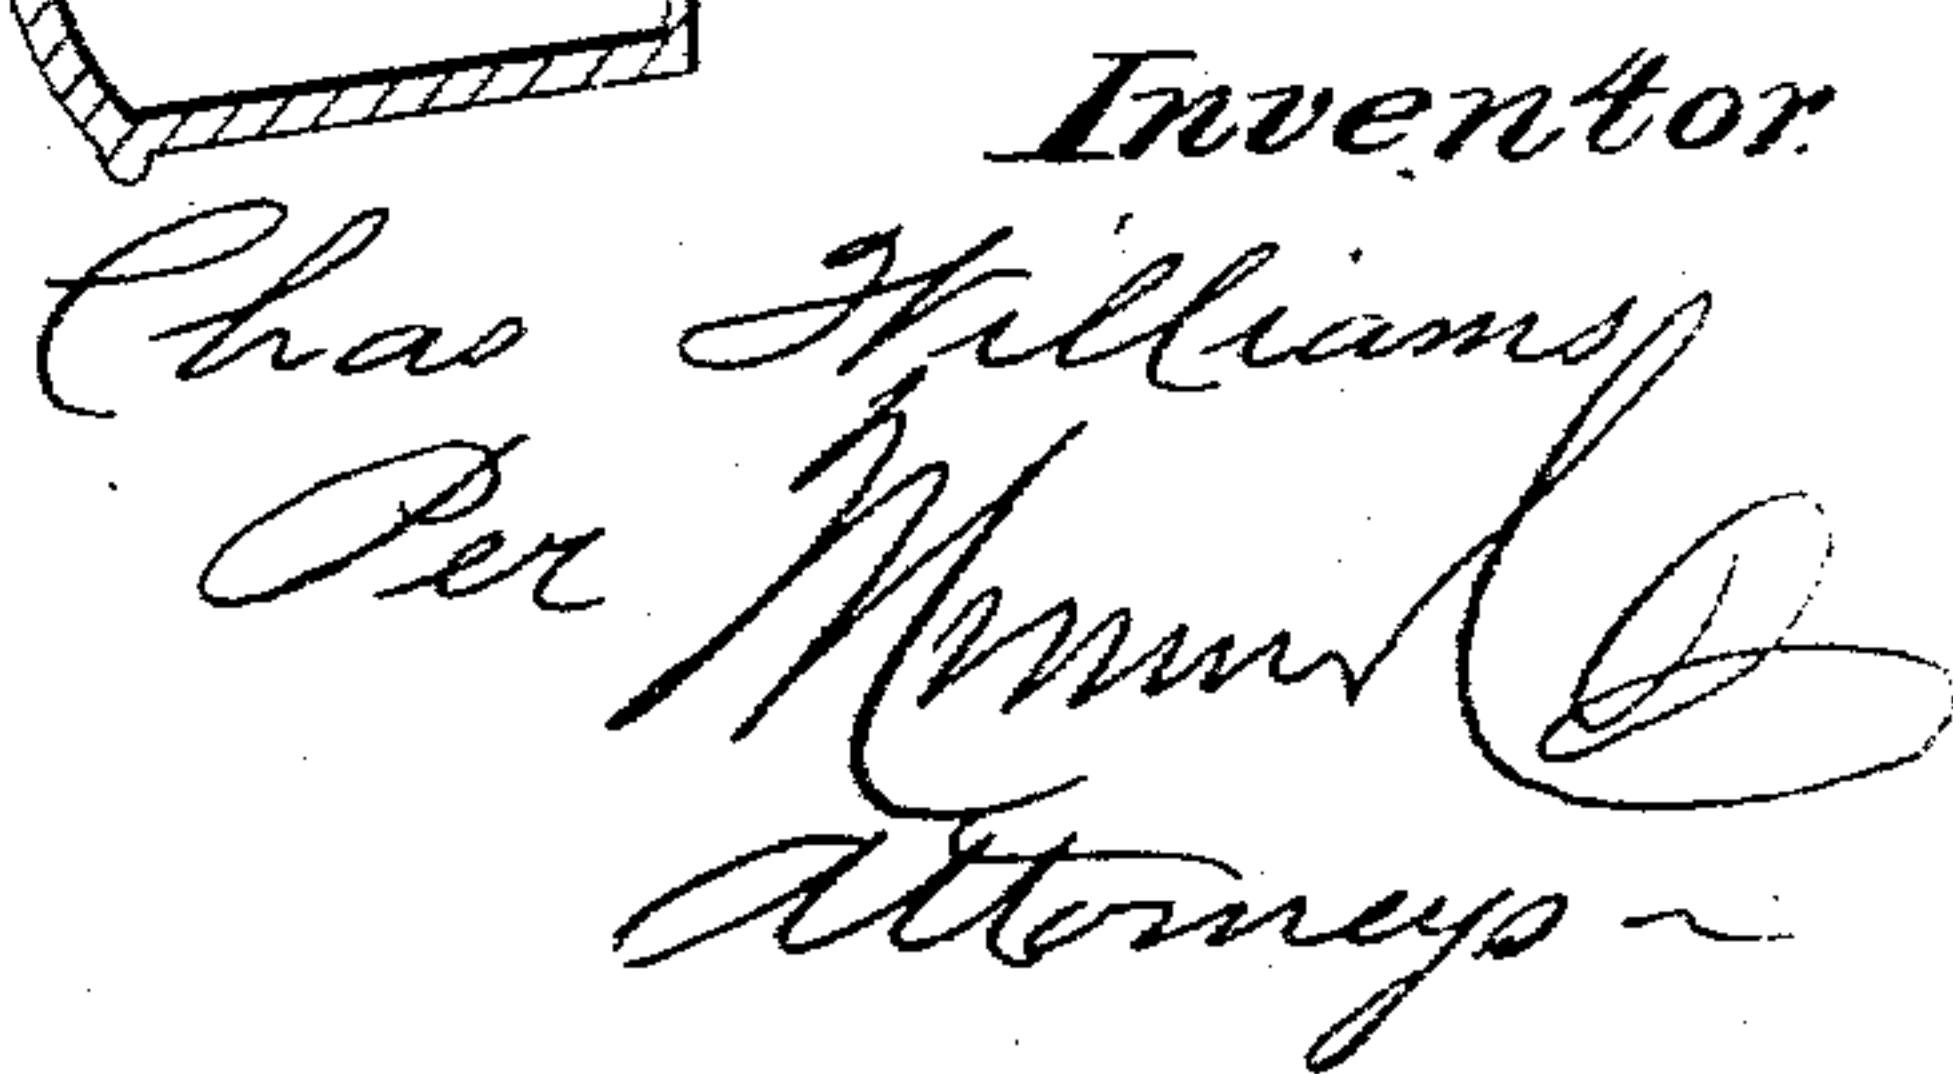 Inventor.
Chas Williams
Per Munn & Co
Attorneys